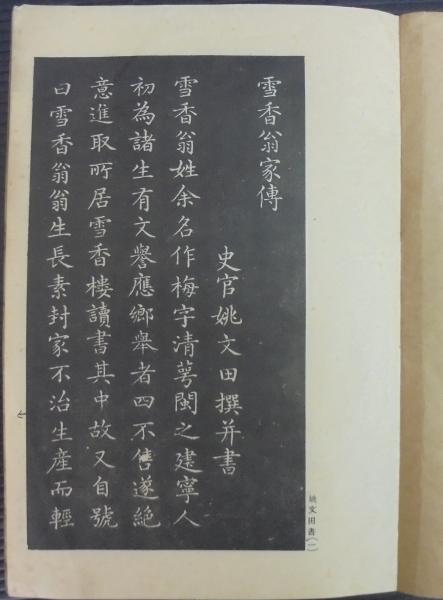 雪香翁家傳
史官姚文田撰并書
雪香翁姓余名作梅字清萼閩之建寧人
初為諸生有文譽應鄉舉者四不售遂絕
意進取所居雪香樓讀書其中故又自號
曰雪香翁翁生長素封家不治生產而輕
姚文田書(一)